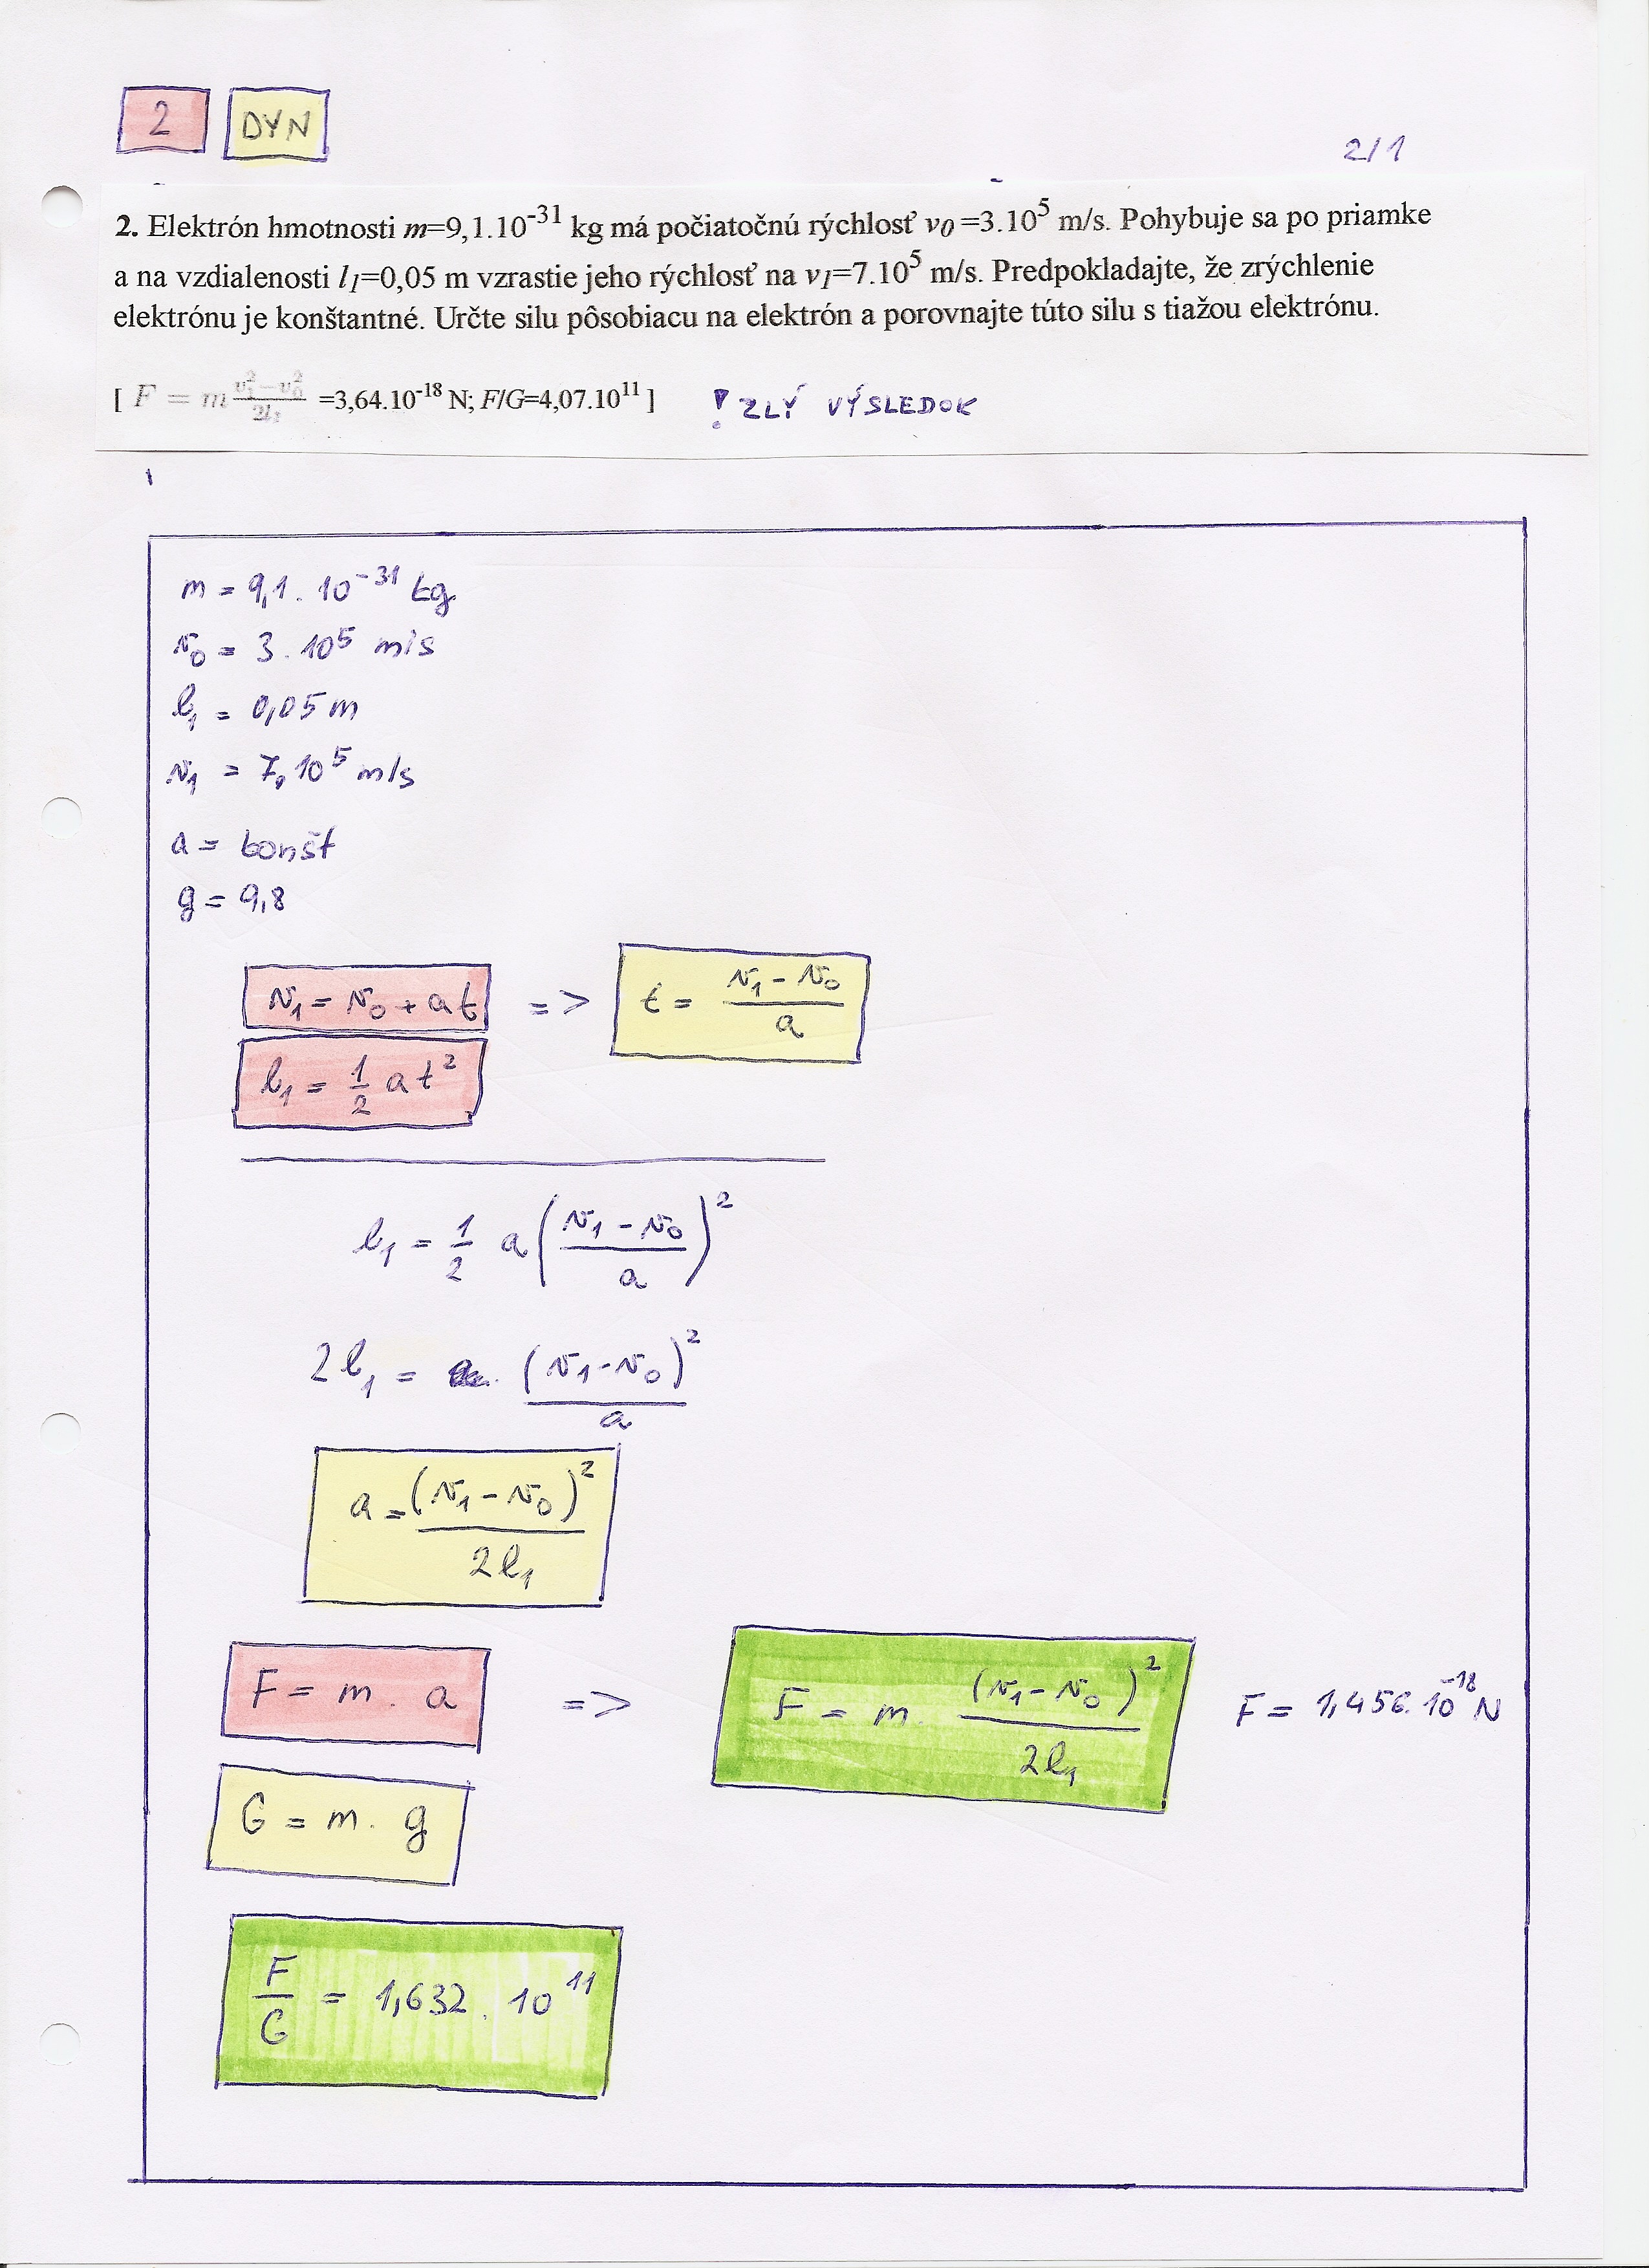 2 DYN
2/1
2. Elektrón hmotnosti m=9,1.10^-31 kg má počiatočnú rýchlosť v0 =3.10^5 m/s. Pohybuje sa po priamke
a na vzdialenosti l1=0,05 m vzrastie jeho rýchlosť na v1=7.10^5 m/s. Predpokladajte, že zrýchlenie
elektrónu je konštantné. Určte silu pôsobiacu na elektrón a porovnajte túto silu s tiažou elektrónu.
[ F = m (v1^2 − v0^2)/(2l1) =3,64.10^-18 N; F/G=4,07.10^11 ] ! ZLÝ VÝSLEDOK
m = 9,1. 10^-31 kg
v0 = 3. 10^5 m/s
l1 = 0,05 m
v1 = 7. 10^5 m/s
a = konšt
g = 9,8
v1 = v0 + at => t = (v1 - v0)/a
l1 = 1/2 at^2
l1 = 1/2 a ((v1 - v0)/a)^2
2l1 = (v1 - v0)^2/a
a = (v1 - v0)^2/2l1
F = m . a => F = m. (v1 - v0)^2/2l1 F = 1,456. 10^-18 N
G = m. g
F/G = 1,632. 10^11